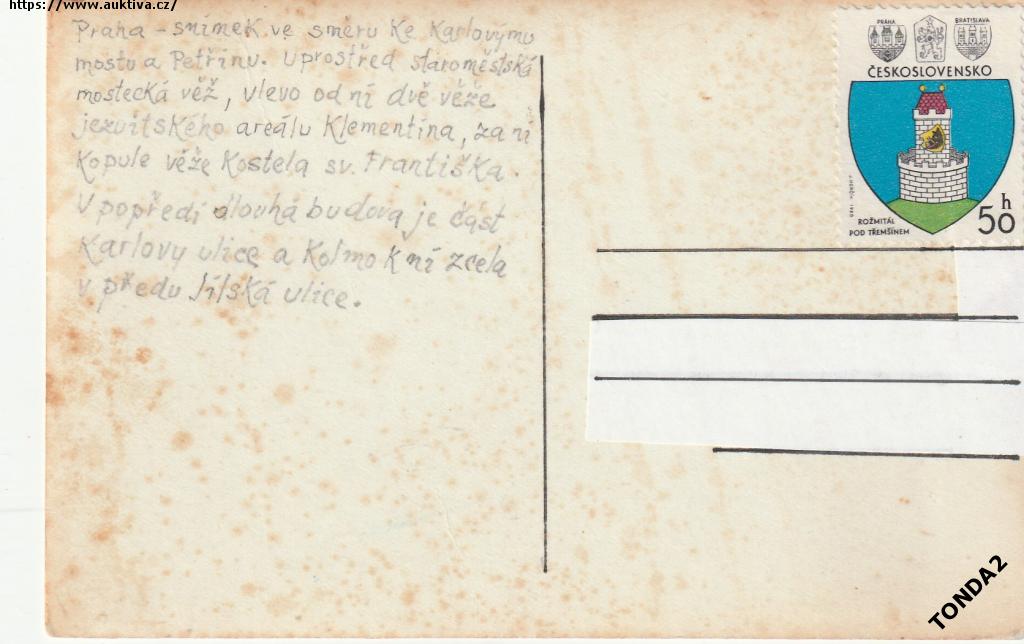 https://www.auktiva.cz/
Praha - snímek ve směru ke Karlovymu
mostu a Petřínu. Uprostřed staroměstská
mostecká věž, vlevo od ní dvě věže
jezuitského areálu Klementina, za ní
kopule věže kostela sv. Františka.
V popředí dlouhá budova je část
Karlovy ulice a kolmo k ní zcela
v předu Jilská ulice.
PRAHA
BRATISLAVA
ČESKOSLOVENSKO
ROŽMITÁL
POD TŘEMŠÍNEM
50 h
TONDA2